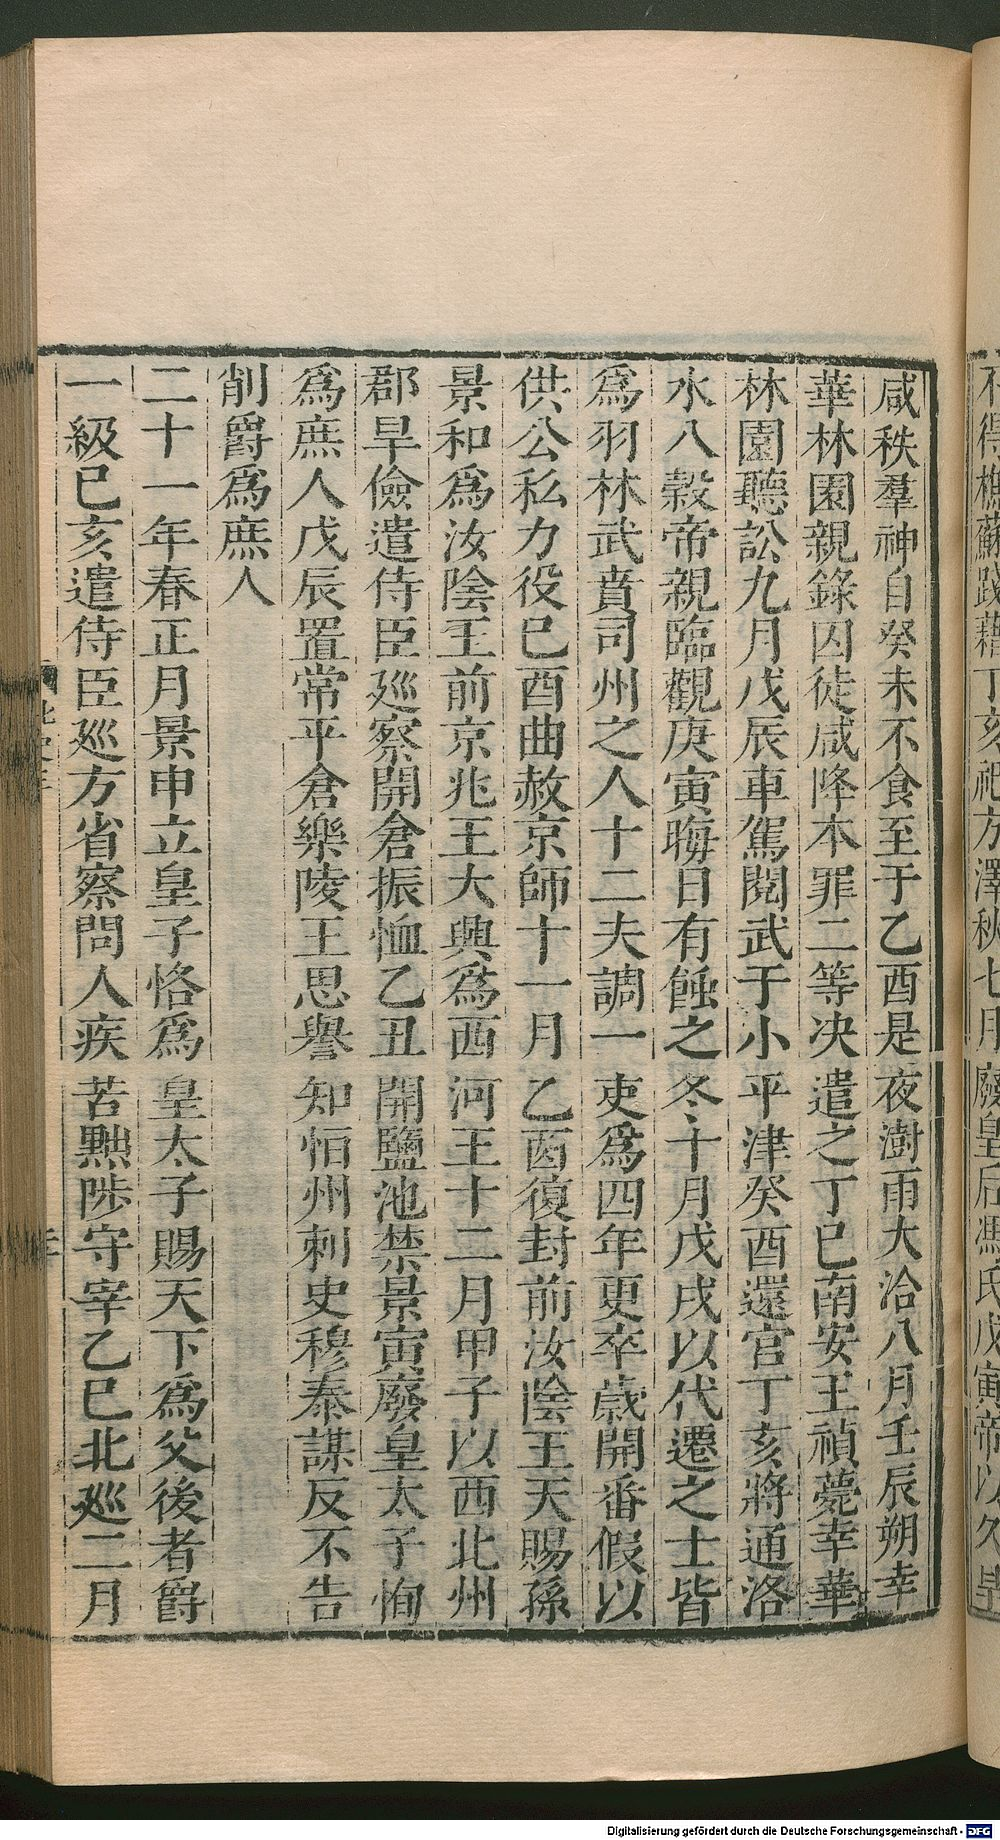 咸秩羣神自癸未不食至于乙酉是夜澍雨大洽八月壬辰朔幸
華林園親錄囚徒咸降本罪二等决遣之丁巳南安王禎薨幸華
林園聽訟九月戊辰車駕閱武于小平津癸酉還宮丁亥將通洛
水八穀帝親臨觀庚寅晦日有蝕之冬十月戊戌以代遷之士皆
爲羽林武賁司州之人十二夫調一吏爲四年更卒歲開番假以
供公私力役巳酉曲赦京師十一月乙酉復封前汝陰王天賜孫
景和爲汝陰王前京兆王大興爲西河王十二月甲子以西北州
郡旱儉遣侍臣廵察開倉振恤乙丑開鹽池禁景寅廢皇太子恂
爲庶人戊辰置常平倉樂陵王思譽知怕州刺史穆泰謀反不告
削爵爲庶人
二十一年春正月景申立皇子恪爲皇太子賜天下爲父後者爵
一級巳亥遣侍臣廵方省察問人疾苦黜陟守宰乙巳北廵二月
不得樵蘇踐藉丁亥祀方澤秋七月廢皇后馮氏戊寅帝以久旱
Digitalisierung gefördert durch die Deutsche Forschungsgemeinschaft - DFG